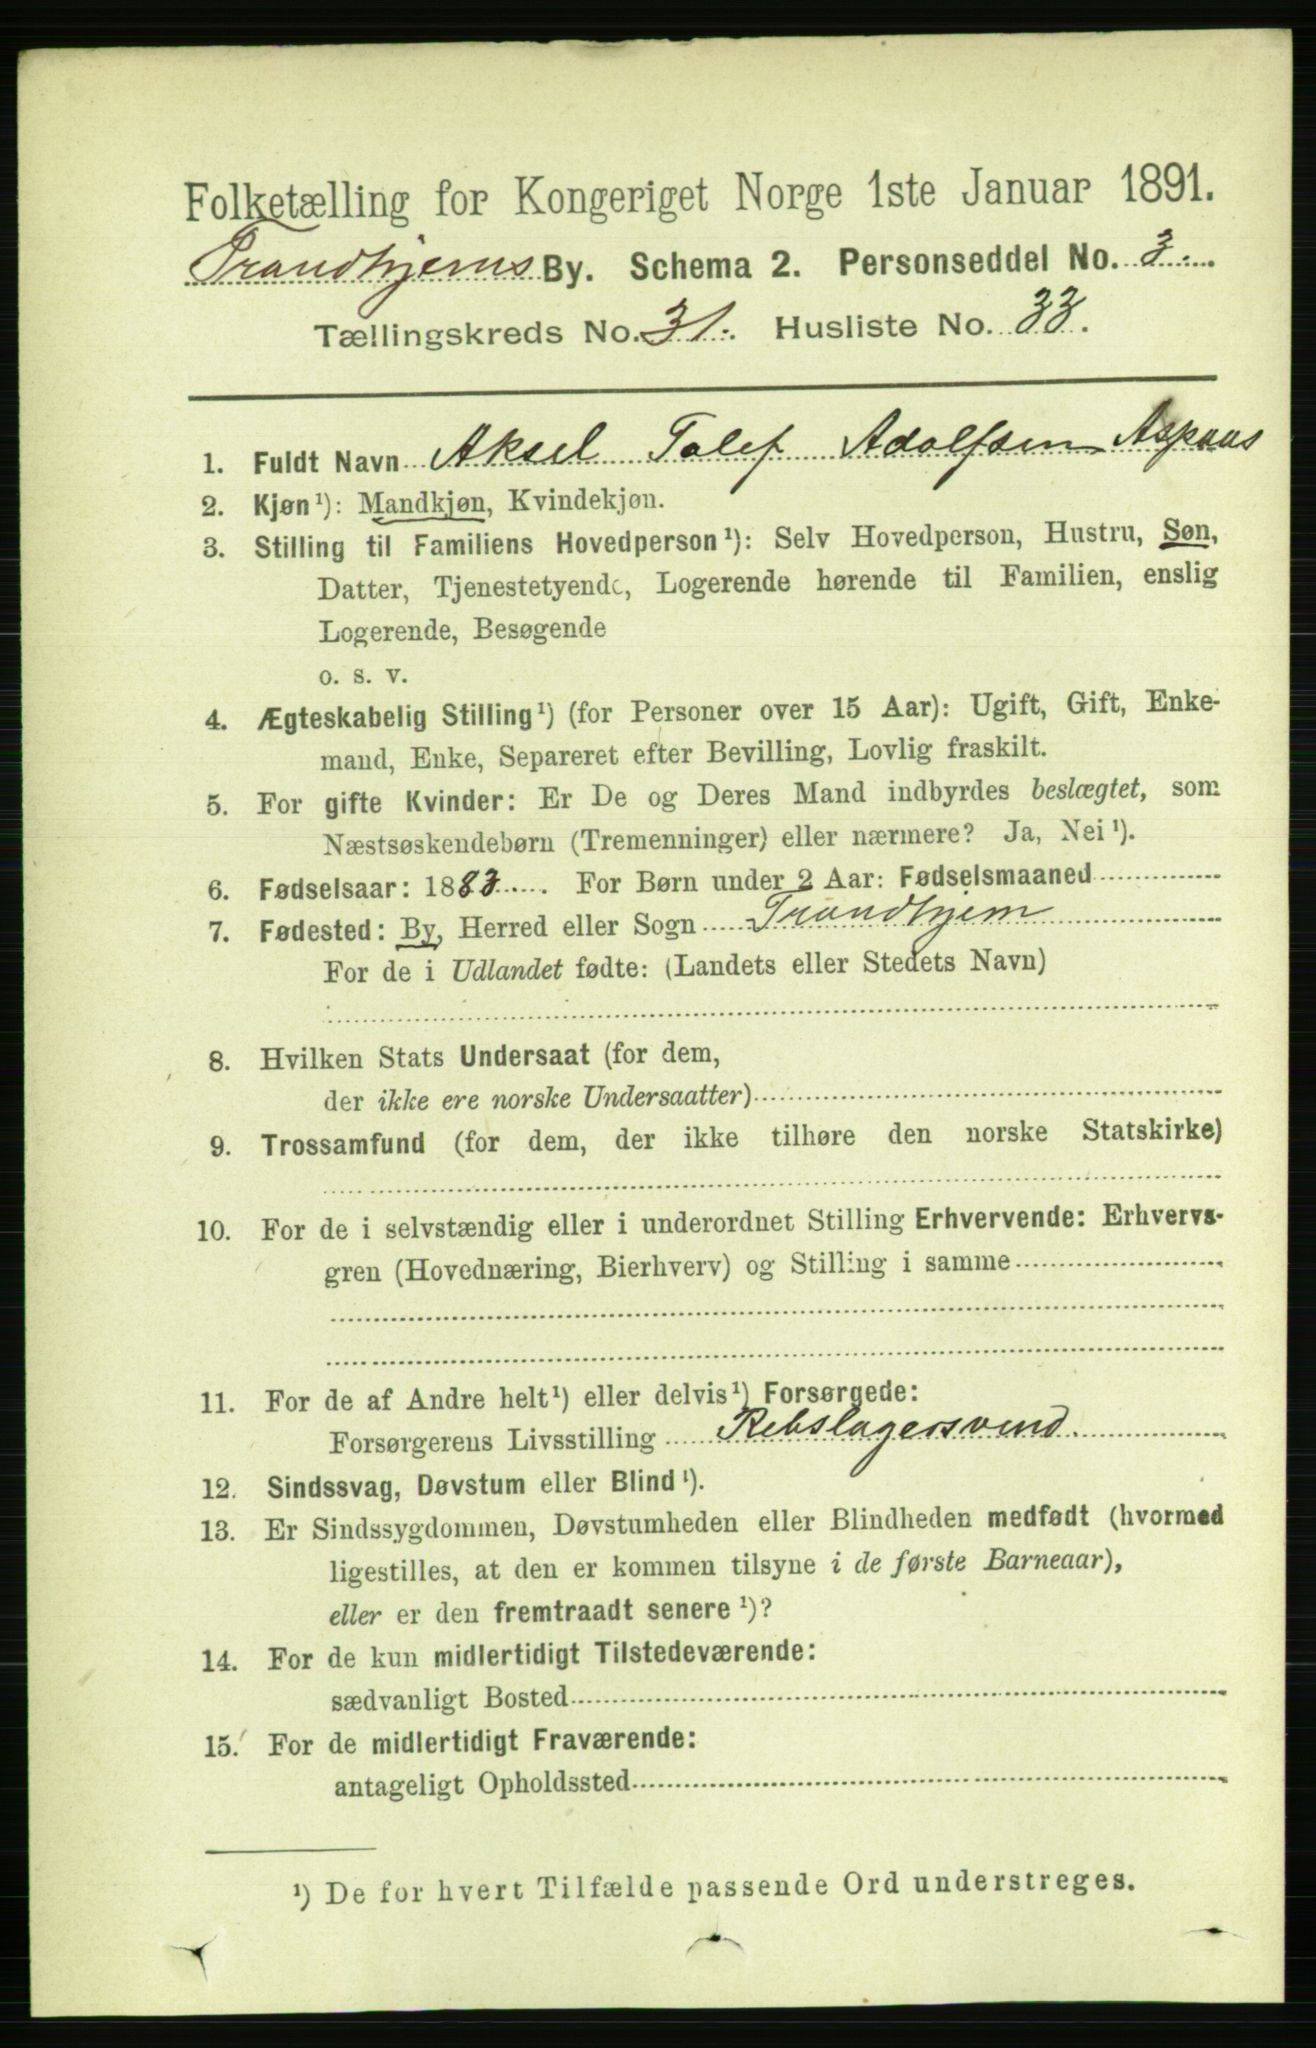 Folketælling for Kongeriget Norge 1ste Januar 1891.
Trondhjems By. Schema 2. Personseddel No. 3.
Tællingskreds No. 31. Husliste No. 33.
1. Fuldt Navn Aksel Tolef Adolfsen Aspaas
2. Kjøn¹): Mandkjøn, Kvindekjøn.
3. Stilling til Familiens Hovedperson¹): Selv Hovedperson, Hustru, Søn,
Datter, Tjenestetyende, Logerende hørende til Familien, enslig
Logerende, Besøgende
o. s. v.
4. Ægteskabelig Stilling¹) (for Personer over 15 Aar): Ugift, Gift, Enke-
mand, Enke, Separeret efter Bevilling, Lovlig fraskilt.
5. For gifte Kvinder: Er De og Deres Mand indbyrdes beslægtet, som
Næstsøskendebørn (Tremenninger) eller nærmere? Ja, Nei¹).
6. Fødselsaar: 1883. For Børn under 2 Aar: Fødselsmaaned
7. Fødested: By, Herred eller Sogn Trondhjem
For de i Udlandet fødte: (Landets eller Stedets Navn)
8. Hvilken Stats Undersaat (for dem,
der ikke ere norske Undersaatter)
9. Trossamfund (for dem, der ikke tilhøre den norske Statskirke)
10. For de i selvstændig eller i underordnet Stilling Erhvervende: Erhvervs-
gren (Hovednæring, Bierhverv) og Stilling i samme
11. For de af Andre helt¹) eller delvis¹) Forsørgede:
Forsørgerens Livsstilling Rebslagersvend.
12. Sindssvag, Døvstum eller Blind¹).
13. Er Sindssygdommen, Døvstumheden eller Blindheden medfødt (hvormed
ligestilles, at den er kommen tilsyne i de første Barneaar),
eller er den fremtraadt senere¹)?
14. For de kun midlertidigt Tilstedeværende:
sædvanligt Bosted
15. For de midlertidigt Fraværende:
antageligt Opholdssted
¹) De for hvert Tilfælde passende Ord understreges.